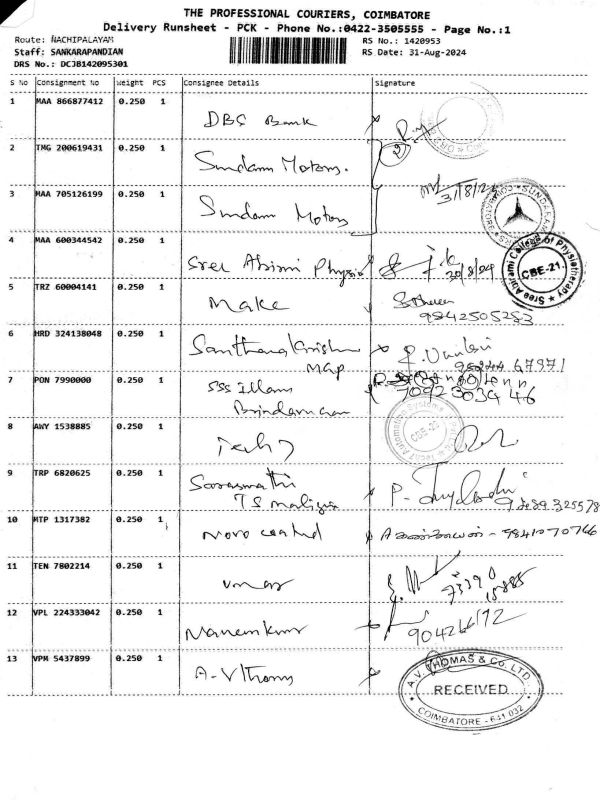 THE PROFESSIONAL COURIERS, COIMBATORE
Delivery Runsheet - PCK - Phone No.:0422-3505555 - Page No.:1
Route: NACHIPALAYAM
RS No.: 1420953
Staff: SANKARAPANDIAN
RS Date: 31-Aug-2024
DRS No.: DCJB142095301
S No Consignment No Weight PCS Consignee Details Signature
1 MAA 866877412 0.250 1 DBS Bank
2 TMG 200619431 0.250 1 Sundaram Motors.
3 MAA 705126199 0.250 1 Sundaram Motors 31/8/24
SUNDARAM
4 MAA 600344542 0.250 1 Sree Abirami Physio 30/8/24
Sree Abirami College of Physiotherapy
CBE-21.
5 TRZ 60004141 0.250 1 Make
9842505283
6 HRD 324138048 0.250 1 Santhana Krishna
Map
7 PON 7990000 0.250 1 SSS Illam
Brindavan
7092303946
8 AWY 1538885 0.250 1
9 TRP 6820625 0.250 1 Saraswathi
TS
10 MTP 1317382 0.250 1 Novo coated 9841070766
11 TEN 7802214 0.250 1
12 VPL 224333042 0.250 1
13 VPM 5437899 0.250 1 A-V Thomas
A.V. THOMAS & Co. LTD.,
RECEIVED
COIMBATORE - 641 032